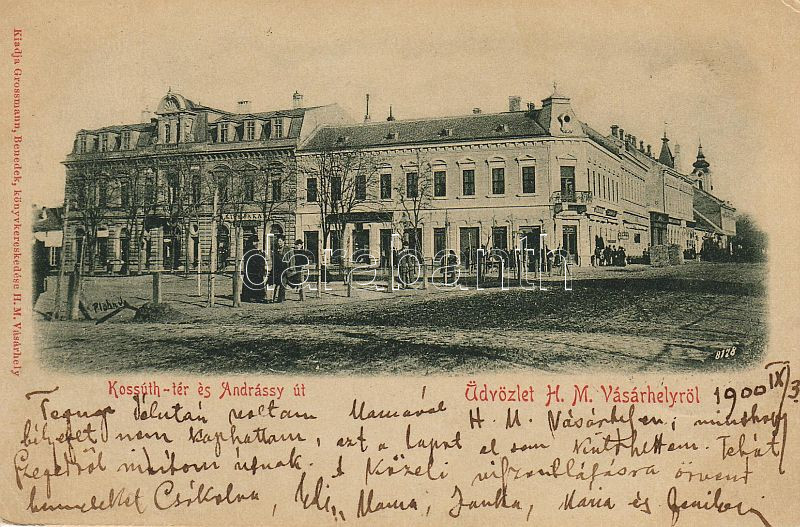 Kiadja Grossmann, Benedek, könyvkereskedése H. M. Vásárhely
darabanth
8128
Kossúth-tér és Andrássy út
Üdvözlet H. M. Vásárhelyröl
1900 IX/3
Tegnap délután voltam Mamával H. M. Vásárhelyen, minthogy
bélyeget nem kaphattam, ezt a lapot el sem küldhettem. Tehát
Szegedről indítom útnak. A közeli viszontlátásra örvend
benneteket Csókolva, Mama, Janka, Maria és